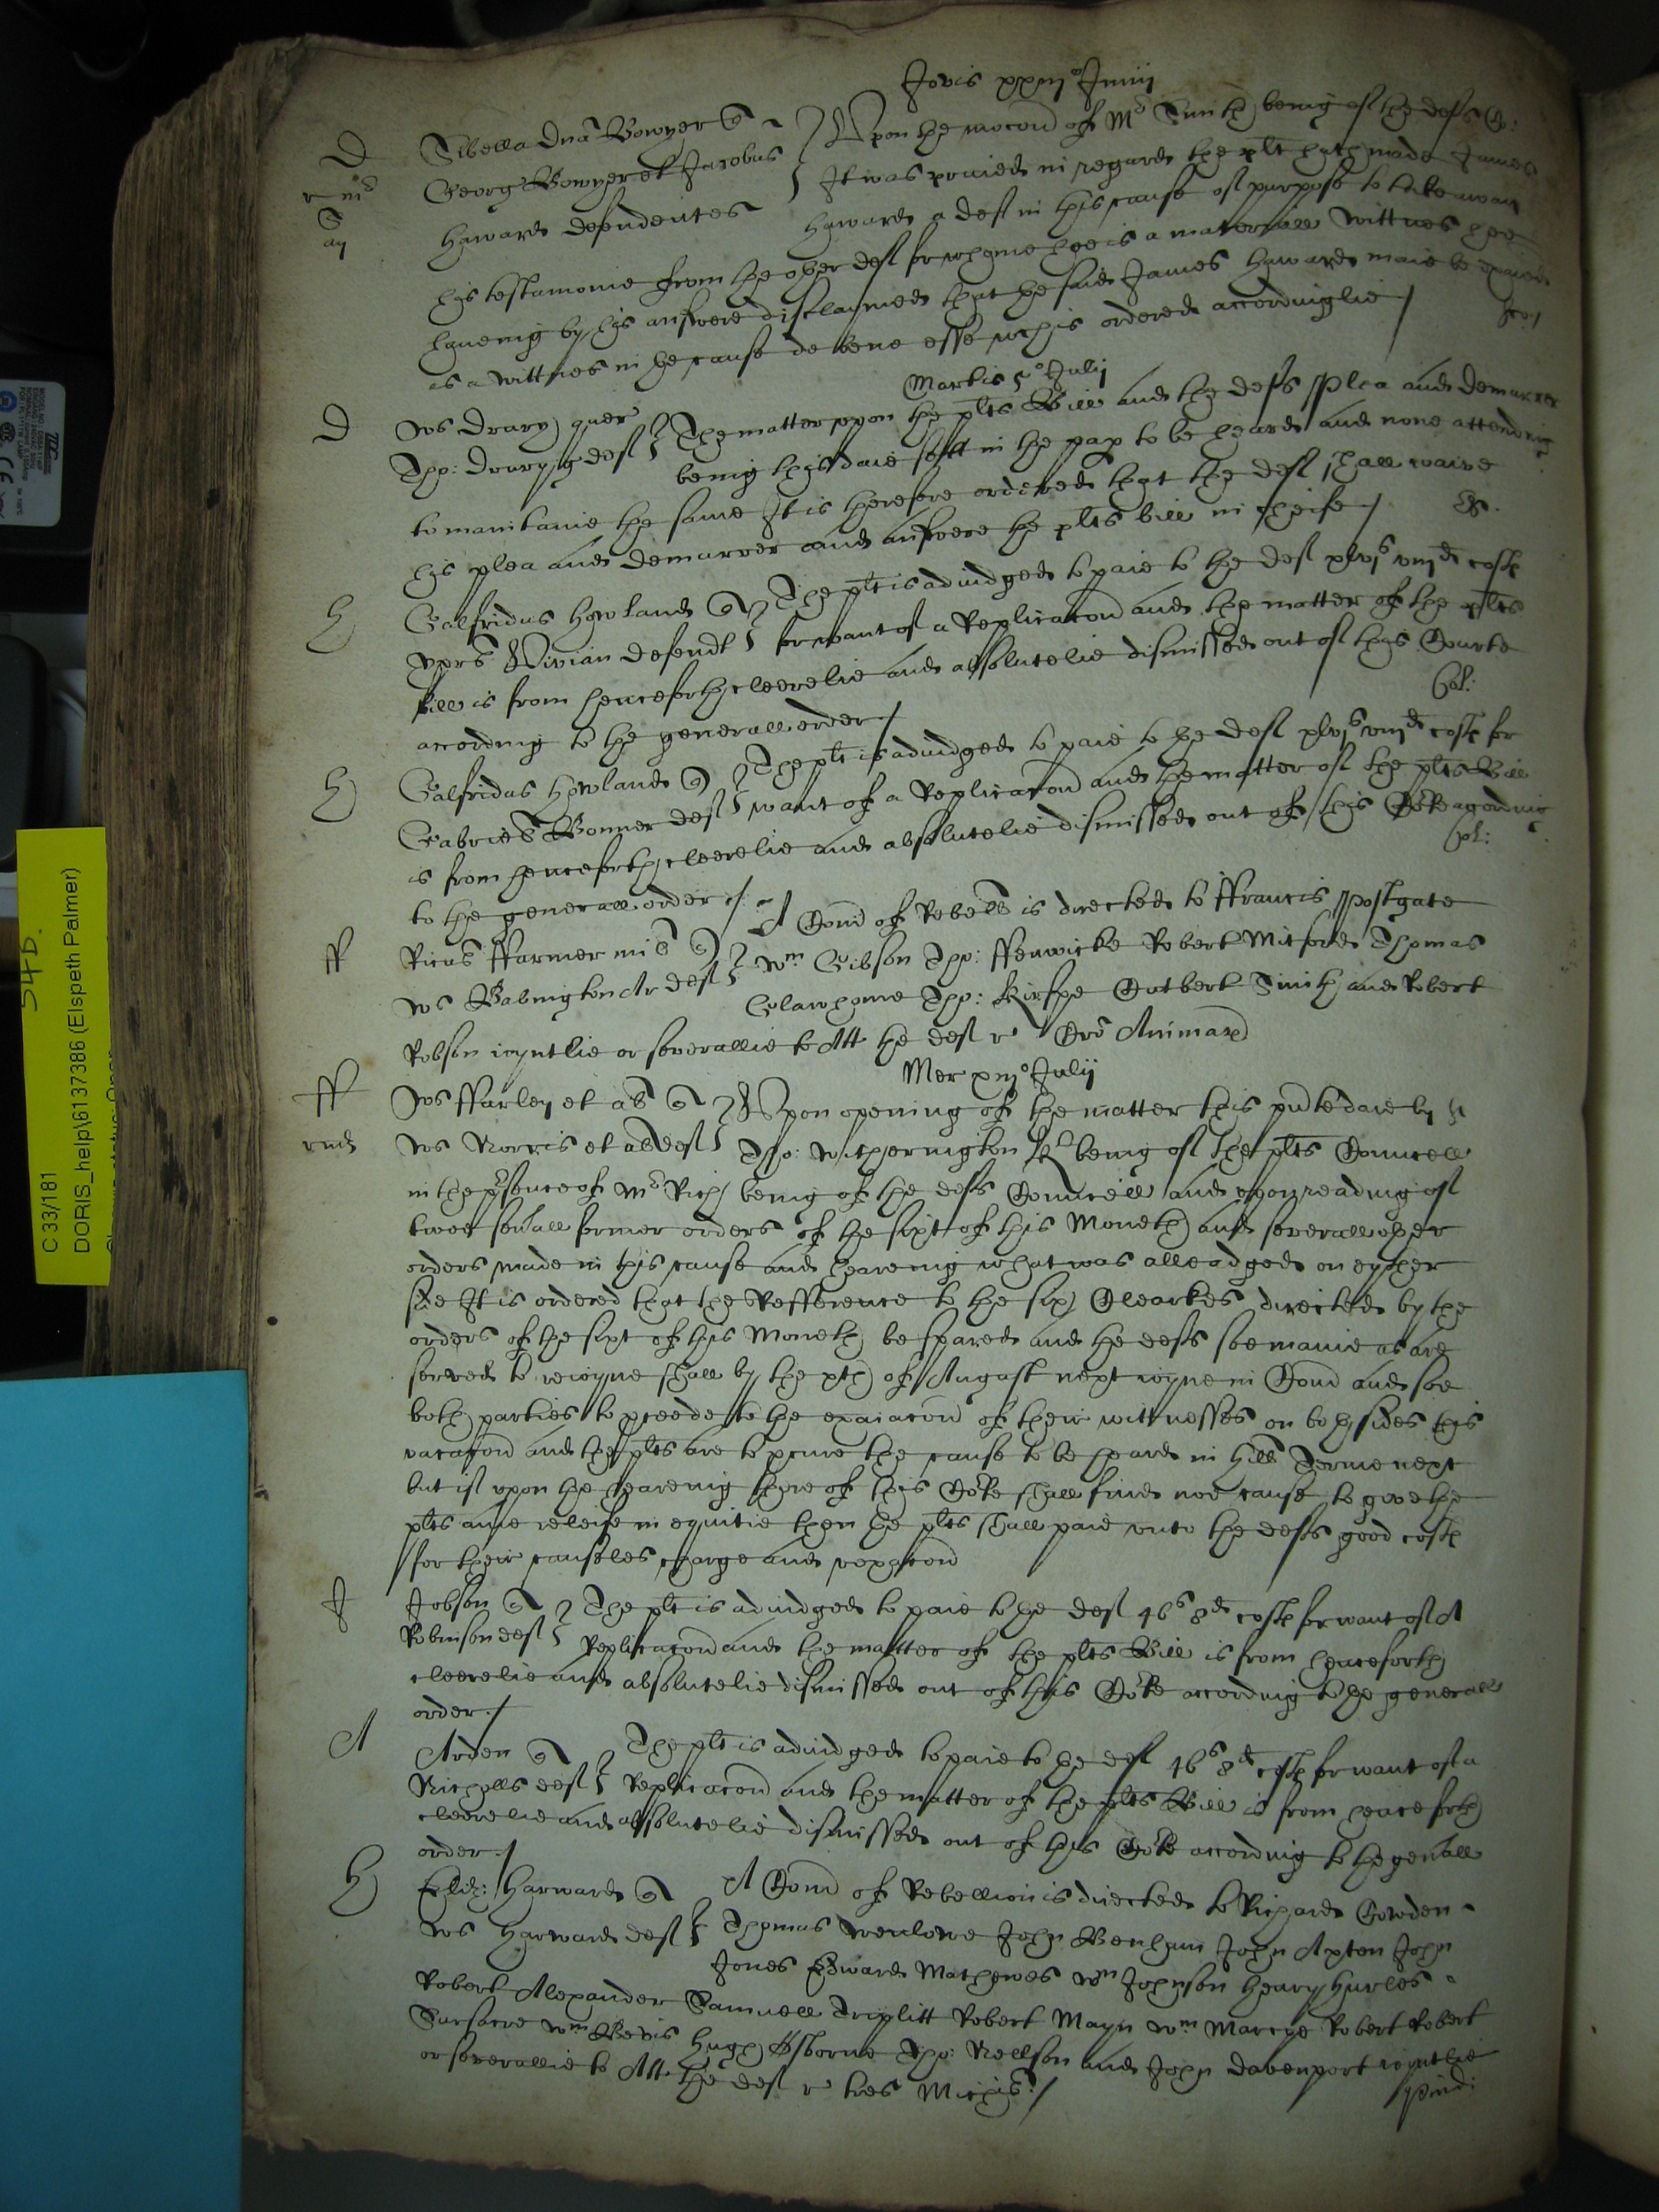 Jovis xxiij° Junij
D Sibella Dna Bowyer q Upon the mocon of Mr Smith being of the defts Co:
Georg Bowyer et Jacobus It was praied in regard the plt hath made James
Haward defendentes Haward a deft in this cause of purpose to take away
his testamonie from the other deft for whome hee is a materiall wittnes hee
haveing by his answere disclaymed that the said James Haward maie be exaied
as a wittnes in the cause de bene esse wch is ordered accordinglie /
Martis 5° Julij
D Ws Drury quer The matter upon the plts Bill and the defts Plea and demurrer
Tho: Drury deft being this daie sett in the pap to be heard and none attending
to maintaine the same It is therefore ordered that the deft shall waive
his plea and demurrer and answere the plts bill in cheife /
H Galfridus Howland q The plt is adiudged to paie to the deft xlvjs viijd costs
Xpr Vivian defendt for want of a Replicacon and the matter of the plts
bill is from henceforth cleerelie and absolutelie dismissed out of this Courte
according to the generall order /
H Galfridus Howland q The plt is adiudged to paie to the deft xlvjs viijd costs for
Gabriel Bonner deft want of a Replicacon and the matter of the plts Bill
is from henceforth cleerelie and absolutelie dismissed out of this Corte acording
to the generall order /
ff Ricus ffarmer mil q A Comd of Rebell is directed to ffrancis Postgate
Ws Babington Ar deft Wm Gibson Tho: ffenwicke Robert Mitford Thomas
Tho: Cutbert Smith and Robert
Robson ioyntlie or severallie to Att the deft r Cro Animar
Mer xiij° Julij
ff Ws ffarley et al q Upon opening of the matter this pnte daie by Sr
Ws Norris et al deft Tho: Witherington Kt being of the plts Councell
in the psence of Mr Rich being of the defts Councell and upon reading of
twoe sevall former orders of the sixt of this Moneth and severall other
orders made in this cause and heareing what was alleadged on eyther
side It is ordered that the Refference to the six Clearkes directed by the
orders of the sixt of this Moneth be spared and the defts soe manie as are
served to reioyne shall by the xth of August next ioyne in Comd and soe
both parties to pceede to the exaiacon of their wittnesses on both sides this
vacacon and the plts are to pcure the cause to be heard in Hill Terme next
but if upon the heareing thereof this Corte shall find noe cause to give the
plts anie releife in equitie then the plts shall paie unto the defts good costs
for their causeles charge and vexacon
J Jobson q The plt is adiudged to paie to the deft 46s 8d costs for want of A
Robinson deft Replicacon and the matter of the plts Bill is from henceforth
cleerelie and absolutelie dismissed out of this Corte according to the generall
order /
A Arden q The plt is adiudged to paie to the deft 46s 8d costs for want of a
Nicholls deft Replicacon and the matter of the plts Bill is from henceforth
cleerelie and absolutelie dismissed out of this Corte according to the genall
order /
H Eliz: Harward q A Comd of Rebellion is directed to Richard Cowden
Ws Harward deft Thomas John Benham John Axten John
Jones Edward Mathewes Wm Johnson Henry Hurles
Robert Alexander Samuell Triplitt Robert Mayn Wm Robert Robert
Wm Bevis Hugh Osborne Tho: Nellson and John Davenport ioyntlie
or severallie to Att the deft r tres Michis /
C 33/181
DORIS_help\6137386 (Elspeth Palmer)